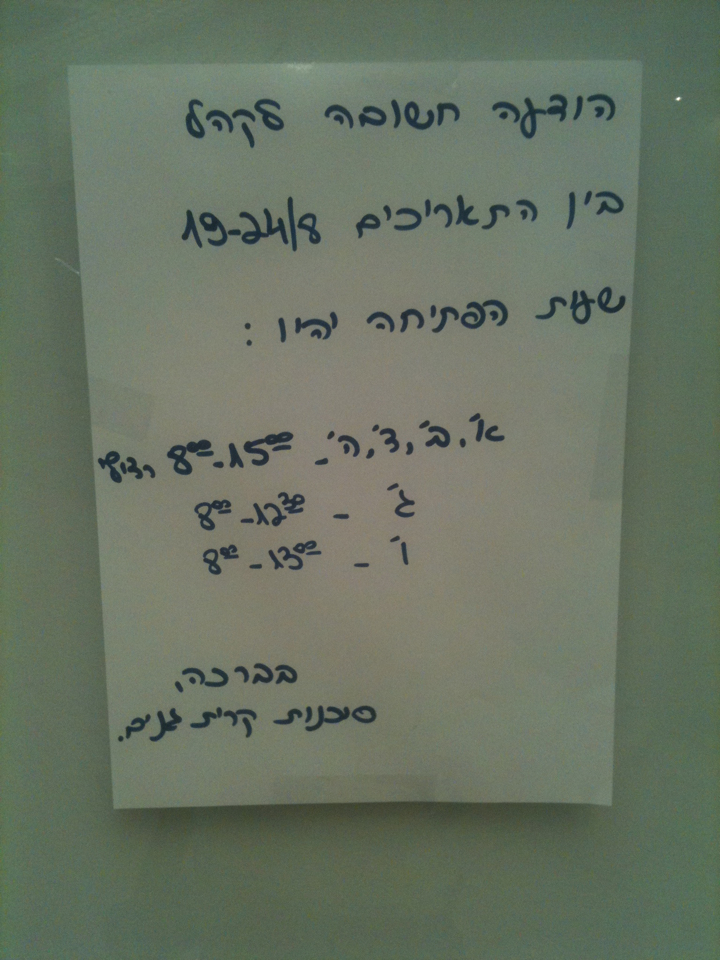 הודעה חשובה לקהל
בין התאריכים 19-24/8
שעות הפתיחה יהיו :
א', ב', ד', ה' - 8⁰⁰-15⁰⁰ רצוף
ג' - 8⁰⁰-12³⁰
ו' - 8⁰⁰-13⁰⁰
בברכה,
סוכנות קרית גנים.